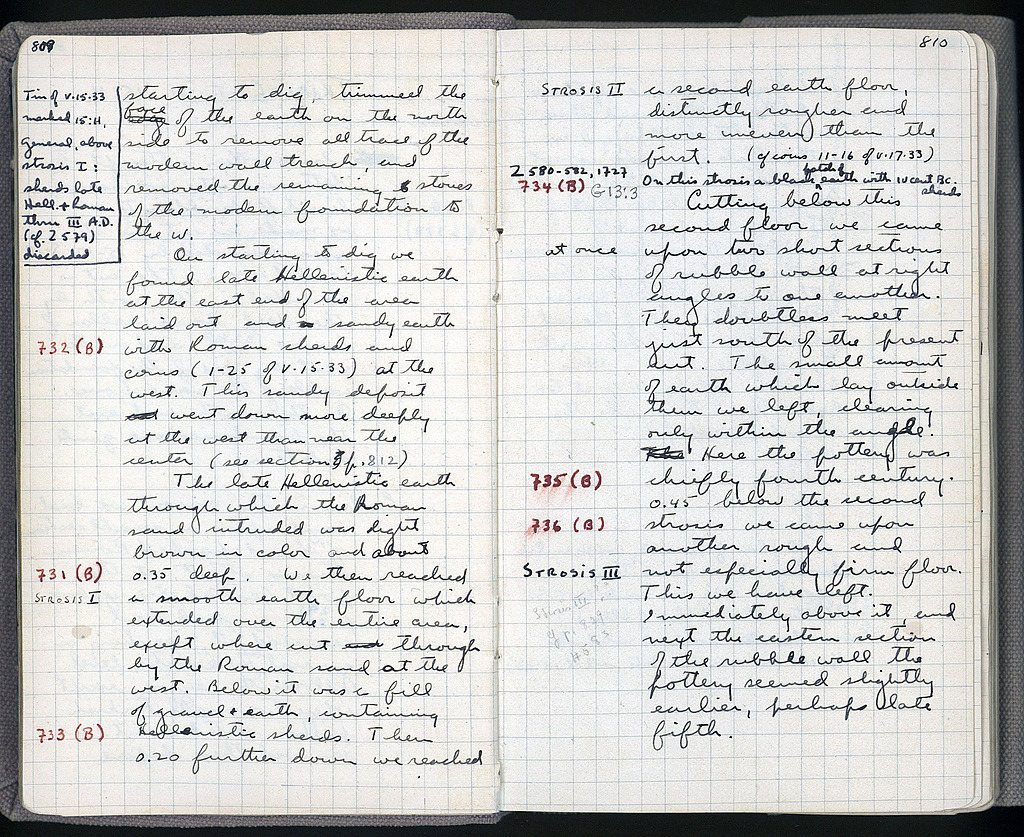 809
Tin of V·15·33
marked 15:H,
General, above
strosis I:
sherds late
Hell. + Roman
thru III A.D.
(cf. Σ 579)
discarded
starting to dig, trimmed the
face
edge of the earth on the north
side to remove all trace of the
modern wall trench, and
removed the remaining stones
of the modern foundation to
the w.
On starting to dig we
found late Hellenistic earth
at the east end of the area
laid out and sandy earth
732 (B) with Roman sherds and
coins (1-25 of V·15·33) at the
west. This sandy deposit
went down more deeply
at the west than near the
center (see section p. 812)
The late Hellenistic earth
through which the Roman
sand intruded was light
brown in color and about
731 (B) 0.35 deep. We then reached
STROSIS I a smooth earth floor which
extended over the entire area,
except where cut through
by the Roman sand at the
west. Below it was a fill
of gravel + earth, containing
733 (B) Hellenistic sherds. Then
0.20 further down we reached
810
STROSIS II a second earth floor,
distinctly rougher and
more uneven than the
first. (cf coins 11-16 of V·17·33)
Σ 580-582, 1727
patch of
734 (B) G13:3 On this strosis a black earth with IV cent BC.
sherds
Cutting below this
second floor we came
at once upon two short sections
of rubble wall at right
angles to one another.
They doubtless meet
just south of the present
cut. The small amount
of earth which lay outside
them we left, clearing
only within the angle.
Here the pottery was
735 (B) chiefly fourth century.
0.45 below the second
736 (B) strosis we came upon
another rough and
STROSIS III not especially firm floor.
This we have left.
Strosis III
cf p. 829
Immediately above it, and
next the eastern section
of the rubble wall the
pottery seemed slightly
earlier, perhaps late
fifth.